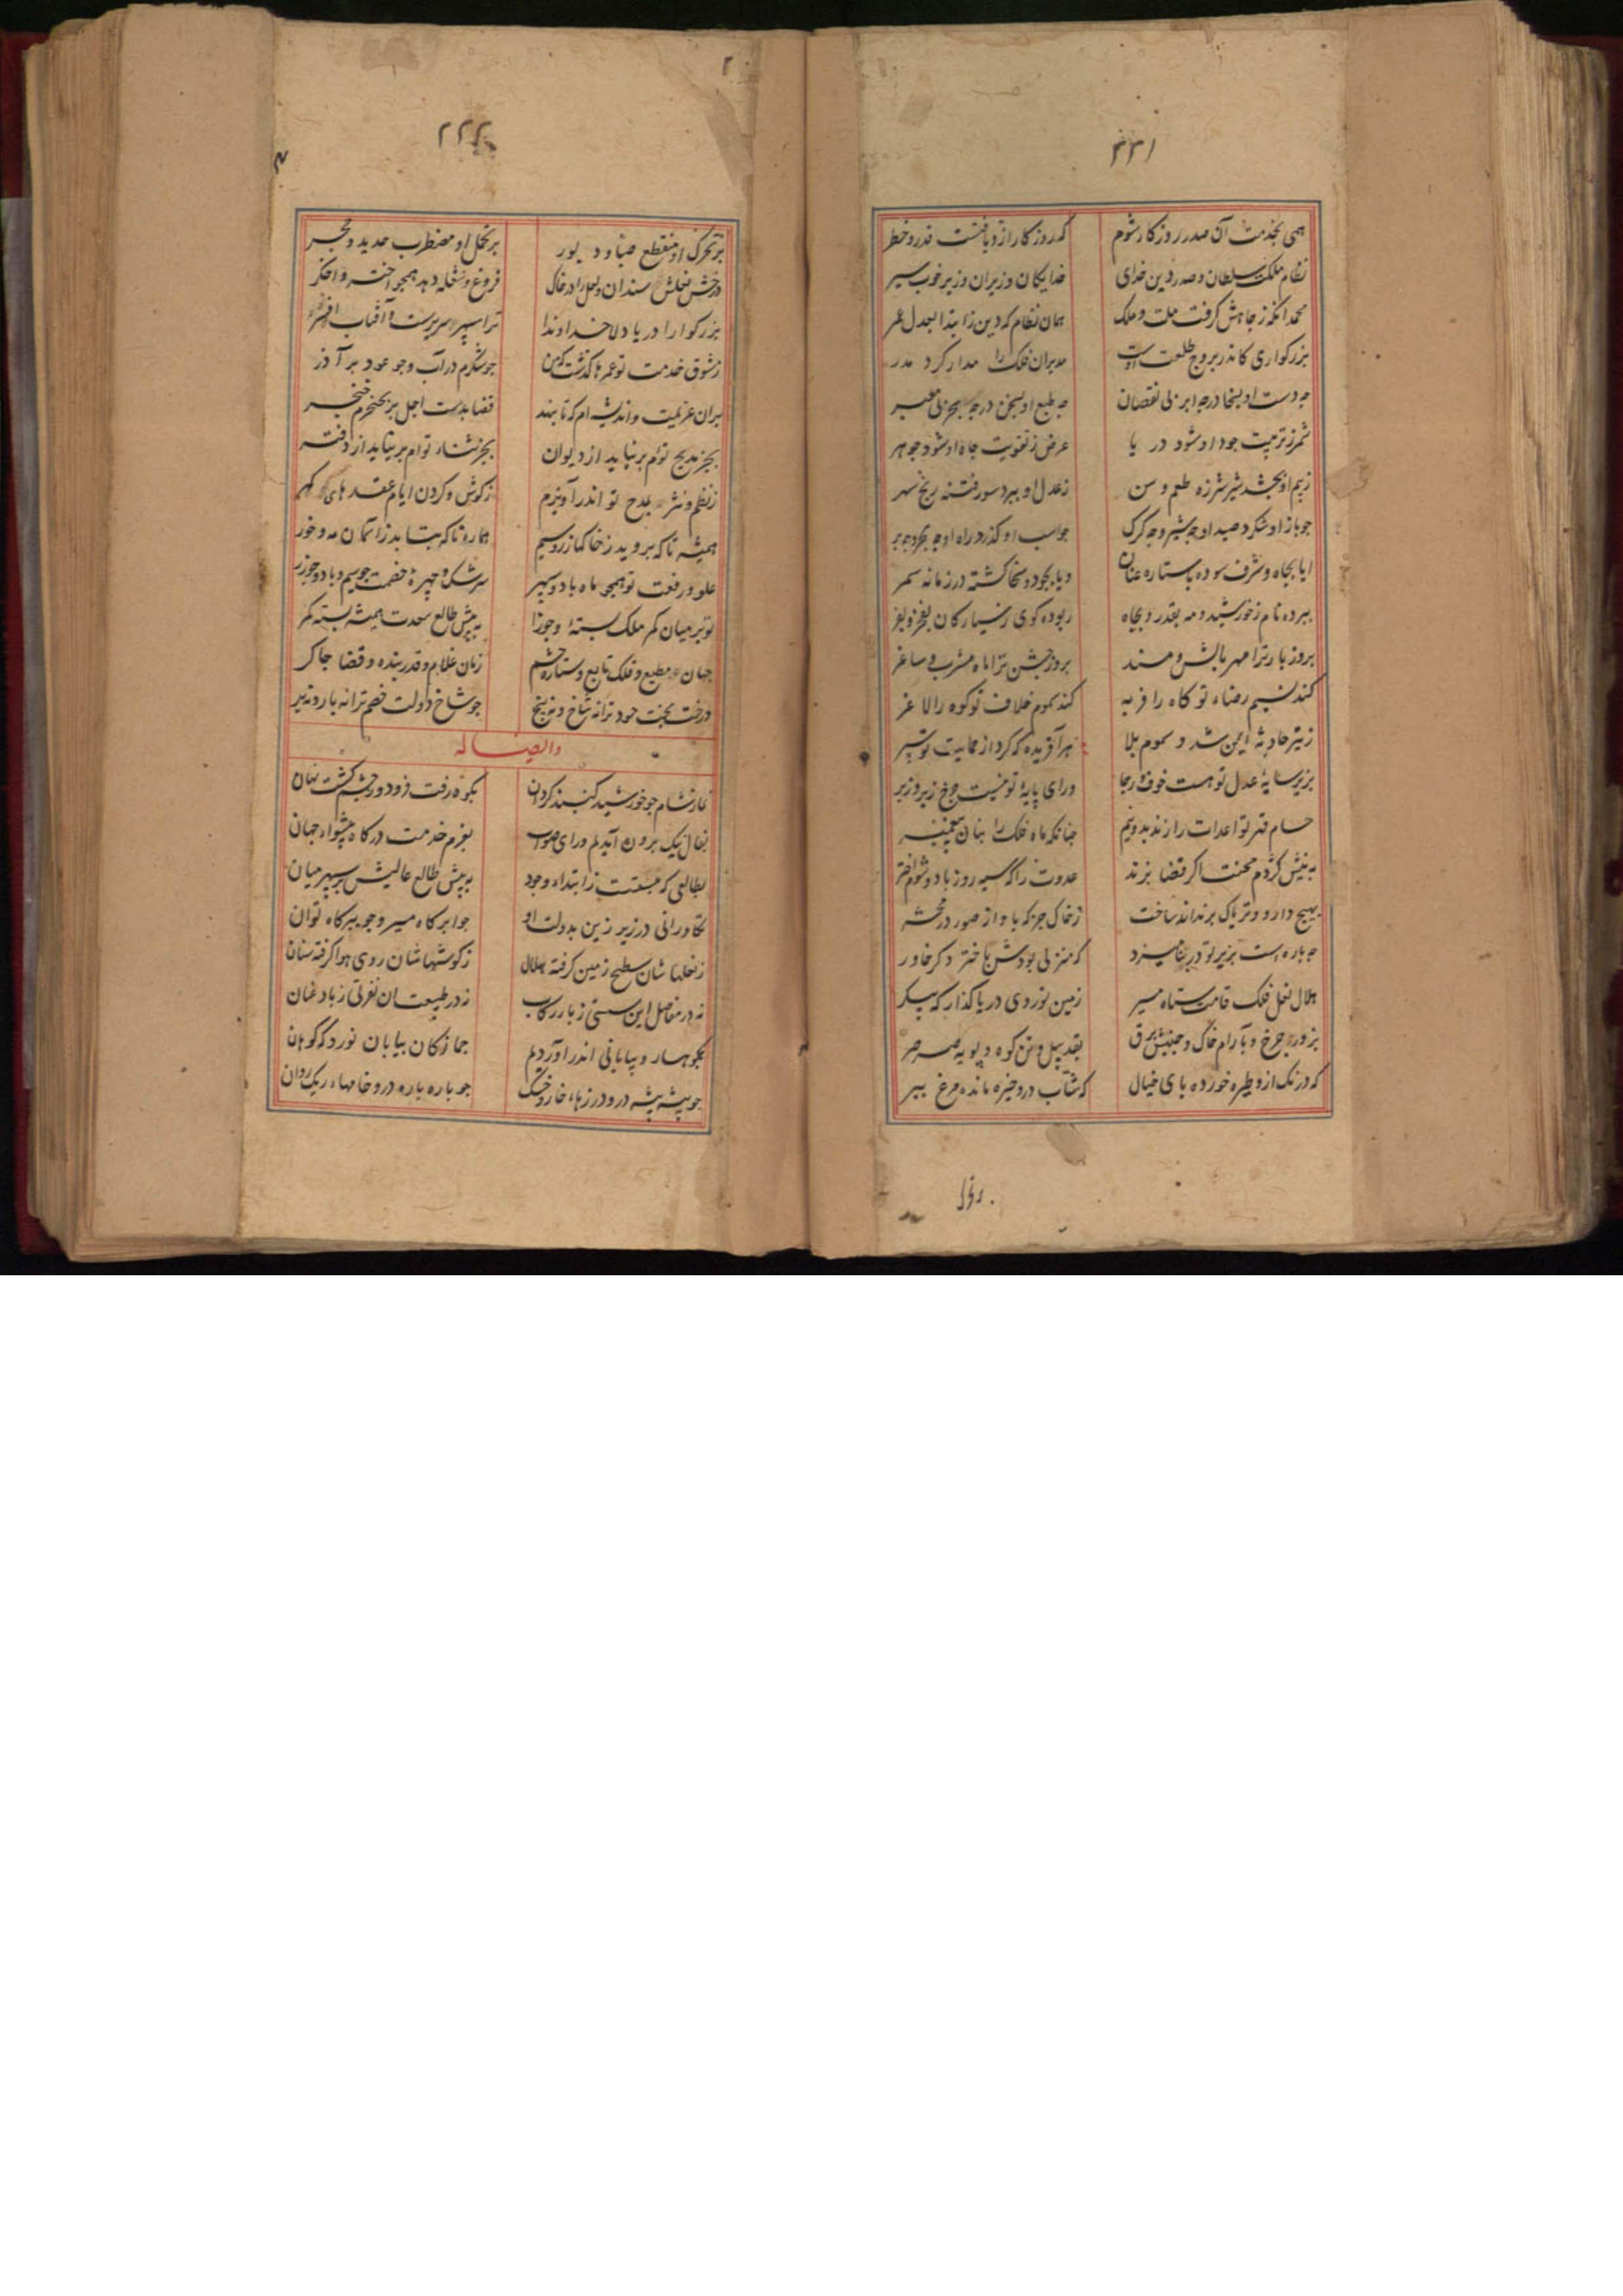 ۲۲۱
همی بخدمت آن صدر روزکار شوم که روزکار ازو یافتست قدر و خطر
نظام ملکت سلطان و صدر دین خدای خدایکان وزیران وزیر خوب سیر
محمد آنکه ز جاهش کرفت ملت و ملک همان نظام که دین ز ابتدا بعدل عمر
بزرکواری کاندر بروج طلعت اوست مدبران فلک را مدار کرد مدر
چه دست او بسخا درچه ابر بی نقصان چه طبع او بسخن درچه بحر بی معبر
ثمر ز تربیت جود او شود در یا عرض ز تقویت جاه او شود جوهر
ز بیم او بچشد شیر شرزه طعم وسن ز عدل او ببرد سور فتنه رنج سهر
جو باز او شکرد صید او چه شیر و چه کرک جو اسب او کذرد راه او چه بحر و چه بر
ایا بجاه و شرف سوده با ستاره عنان و یا بجود و سخا کشته در زمانه سمر
ببرده نام ز خورشید و مه بقدر و بجاه ربوده کوی ز سیارکان بفخر و بفر
بروز بار ترا مهر بالش و مسند بروز جشن ترا ماه مشرب و ساغر
کند نسیم رضاء تو کاه را فربه کند سموم خلاف تو کوه را لاغر
ز تیر حادثه ایمن شد و سموم بلا هر آفریده که کرد از حمایت تو سپر
بزیر سایهٔ عدل تو هست خوف و رجا ورای پایهٔ تو نیست چرخ زیر و زبر
حسام قهر تو اعدات را زند بدونیم چنانکه ماه فلک را بنان پیغمبر
به نیش کژدم محنت اکر قضا بزند عدوت را که سیه روز باد و شوم اختر
بهیچ دارو و تریاک برنداند ساخت ز خاک جز که باواز صور در محشر
چه باره است بزیر تو در که منزلی بودش باختر دکر خاور
هلال نعل فلک قامت ستاه مسیر زمین نوردی دریا کذار که پیکر
بزور چرخ و بآرام خاک و جنبش برق بقد پیل و تن کوه و پویه صرصر
که درنک ازو طیره خورده بای خیال که شتاب درو خیره مانده مرغ ببر
۲۲۲
بر تحرک او منقطع صبا و دبور بر تحمل او مضطرب حدید و حجر
درخش نعلش سندان و لعل را در خاک فروغ و شعله دهد همچو اختر و اخکر
بزرکوارا دریا دلا خداوندا ترا سپهر سریرست و آفتاب افسر
ز شوق خدمت تو عمرها کذشت که من جو شکرم در آب و جو عود بر آذر
بران عزیمت و اندیشه ام که تا بنهد قضا بدست اجل بر بحنجرم خنجر
بجز مدیح توام برنیاید از دیوان بجز ثناء توام برنیاید از دفتر
ز نظم و نثر بمدح تو اندر آویزم ز کوش و کردن ایام عقدهای کهر
همیشه تا که بروید ز خاکها زر و سیم هماره تا که بتابد ز آسمان مه و خور
علو و رفعت تو همچو ماه باد و سپهر سرشک و چهرهٔ خصمت جو سیم و باد و جو زر
تو بر میان کمر ملک بسته و جوزا به پیش طالع سعدت همیشه بسته کمر
جهان مطیع و فلک تابع و ستاره حشم زمان غلام و قدر بنده و قضا چاکر
درخت بخت حسود ترا نه شاخ و نه بیخ جو شاخ دولت خصم ترا نه بار و نه بر
و ایضا له
نماز شام جو خورشید کنبد کردان بکوه رفت فرود و ز چشم کشت نهان
بفال نیک برون آمدم ورای صواب بعزم خدمت درکاه پیشواء جهان
بطالعی که ببستست ز ابتداء وجود به پیش طالع عالیش بر سپهر میان
تکاورانی در زیر زین بدولت او جو ابر کاه مسیر و جو ببر کاه توان
ز نعلها شان سطح زمین کرفته هلال ز کوشها شان روی هوا کرفته سنان
نه در مفاصل این سستی ز بار رکاب نه در طبیعت ان نفرتی ز باد عنان
بکوهسار و بیابانی اندر آوردم جمازکان بیابان نورد که کوهان
جو پیشه پیشه درو درزهاء خار و خسک جو باره باره درو خامهاء ریک روان